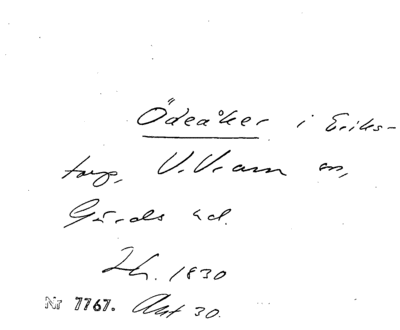 Ödeåker i Eriks-
torp, V. Vram sn,
Gärds hd.
Lh. 1830
Nr 7767. Akt 30.